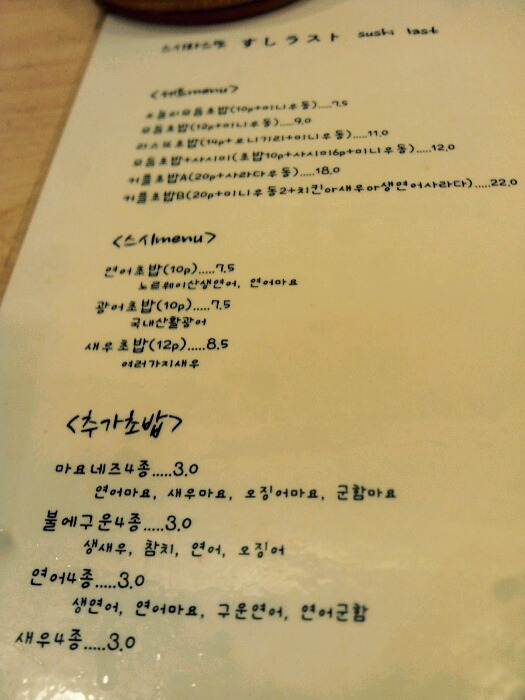 스시라스또 すしラスト sushi last
<세트menu>
모듬초밥(10p+미니우동).....7.5
모듬초밥(12p+미니우동).....9.0
라스또초밥(14p+오니기리+미니우동).....11.0
모듬초밥+사시미(초밥10p+사시미6p+미니우동).....12.0
커플초밥A(20p+사라다우동).....18.0
커플초밥B(20p+미니우동2+치킨or새우or생연어사라다).....22.0
<스시menu>
연어초밥(10p).....7.5
노르웨이산생연어, 연어마요
광어초밥(10p).....7.5
국내산활광어
새우초밥(12p).....8.5
여러가지새우
<추가초밥>
마요네즈4종.....3.0
연어마요, 새우마요, 오징어마요, 군함마요
불에구운4종.....3.0
생새우, 참치, 연어, 오징어
연어4종.....3.0
생연어, 연어마요, 구운연어, 연어군함
새우4종.....3.0